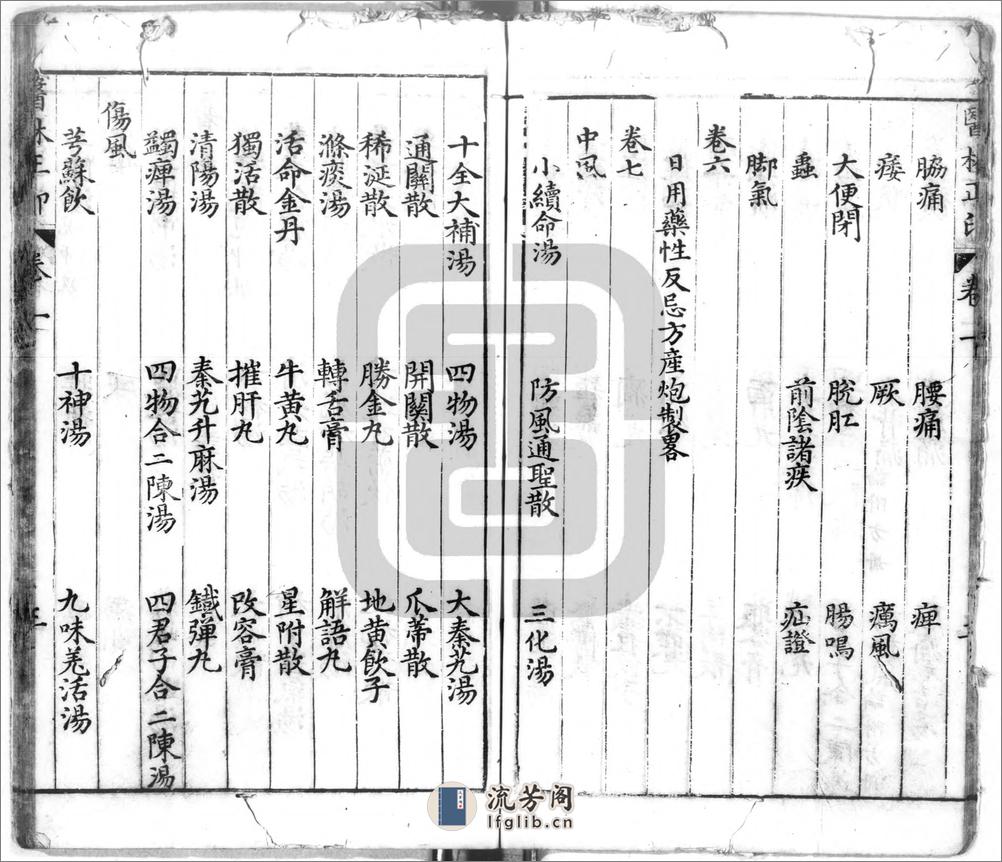 醫林正印 卷一
脇痛 腰痛 痺
痿 厥 癘風
大便閉 脫肛 腸鳴
蟲 前陰諸疾 疝證
脚氣
卷六
日用藥性反忌方産炮製畧
卷七
中風
小續命湯 防風通聖散 三化湯
十全大補湯 四物湯 大秦艽湯
通關散 開關散 瓜蒂散
稀涎散 勝金丸 地黃飲子
滌痰湯 轉舌膏 解語丸
活命金丹 牛黃丸 星附散
獨活散 摧肝丸 改容膏
清陽湯 秦艽升麻湯 鐵彈丸
蠲痺湯 四物合二陳湯 四君子合二陳湯
傷風
芎蘇飲 十神湯 九味羗活湯
醫林正印 卷一
流芳阁
lfglib.cn